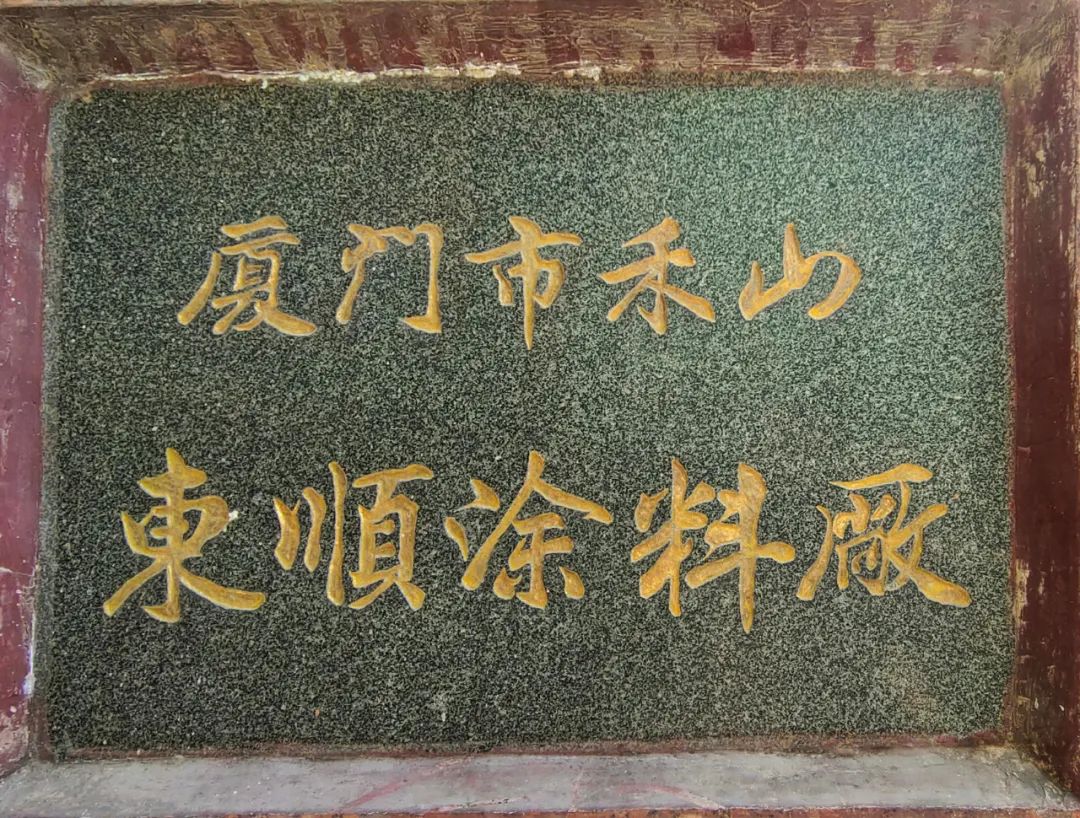 厦门市禾山
東順涂料廠